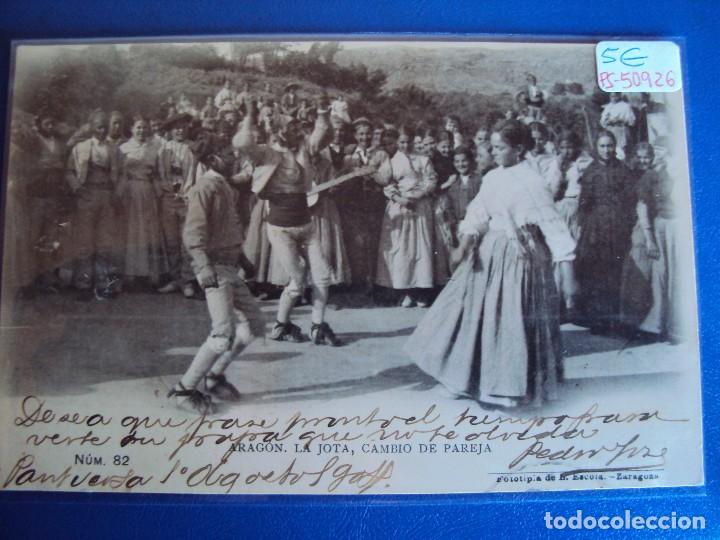 5€
PS-50926
Desea que pase pronto el tiempo para
verte su papa que no te olvida
ARAGÓN. LA JOTA, CAMBIO DE PAREJA
Pedro José
NÚM. 82
1º Agosto
Fototipia de E. Escola. -Zaragoza
todocoleccion.net